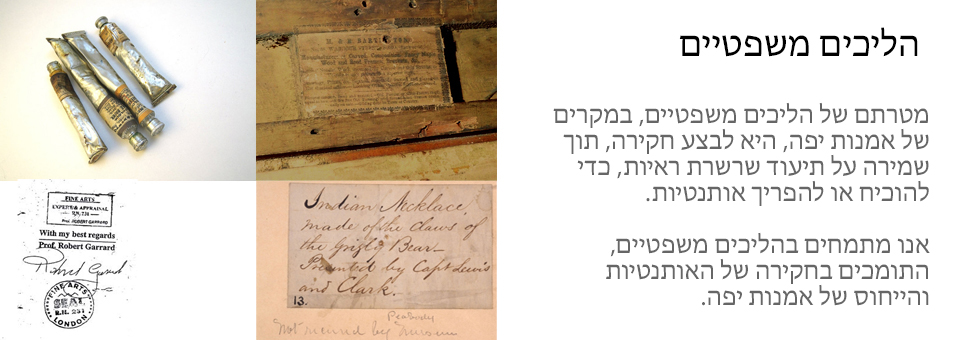 הליכים משפטיים
מטרתם של הליכים משפטיים, במקרים
של אמנות יפה, היא לבצע חקירה, תוך
שמירה על תיעוד שרשרת ראיות, כדי
להוכיח או להפריך אותנטיות.
אנו מתמחים בהליכים משפטיים,
התומכים בחקירה של האותנטיות
והייחוס של אמנות יפה.
FINE ARTS
EXPERT & APPRAISAL
Prof. ROBERT GARRARD
With my best regards
Prof. Robert Garrard
FINE ARTS
SEAL
R.N. 231
LONDON
Indian Necklace,
made of the claws of
the Grizly Bear
Presented by Capt Lewis
and Clark.
13.
Peabody
Not mound by Museum